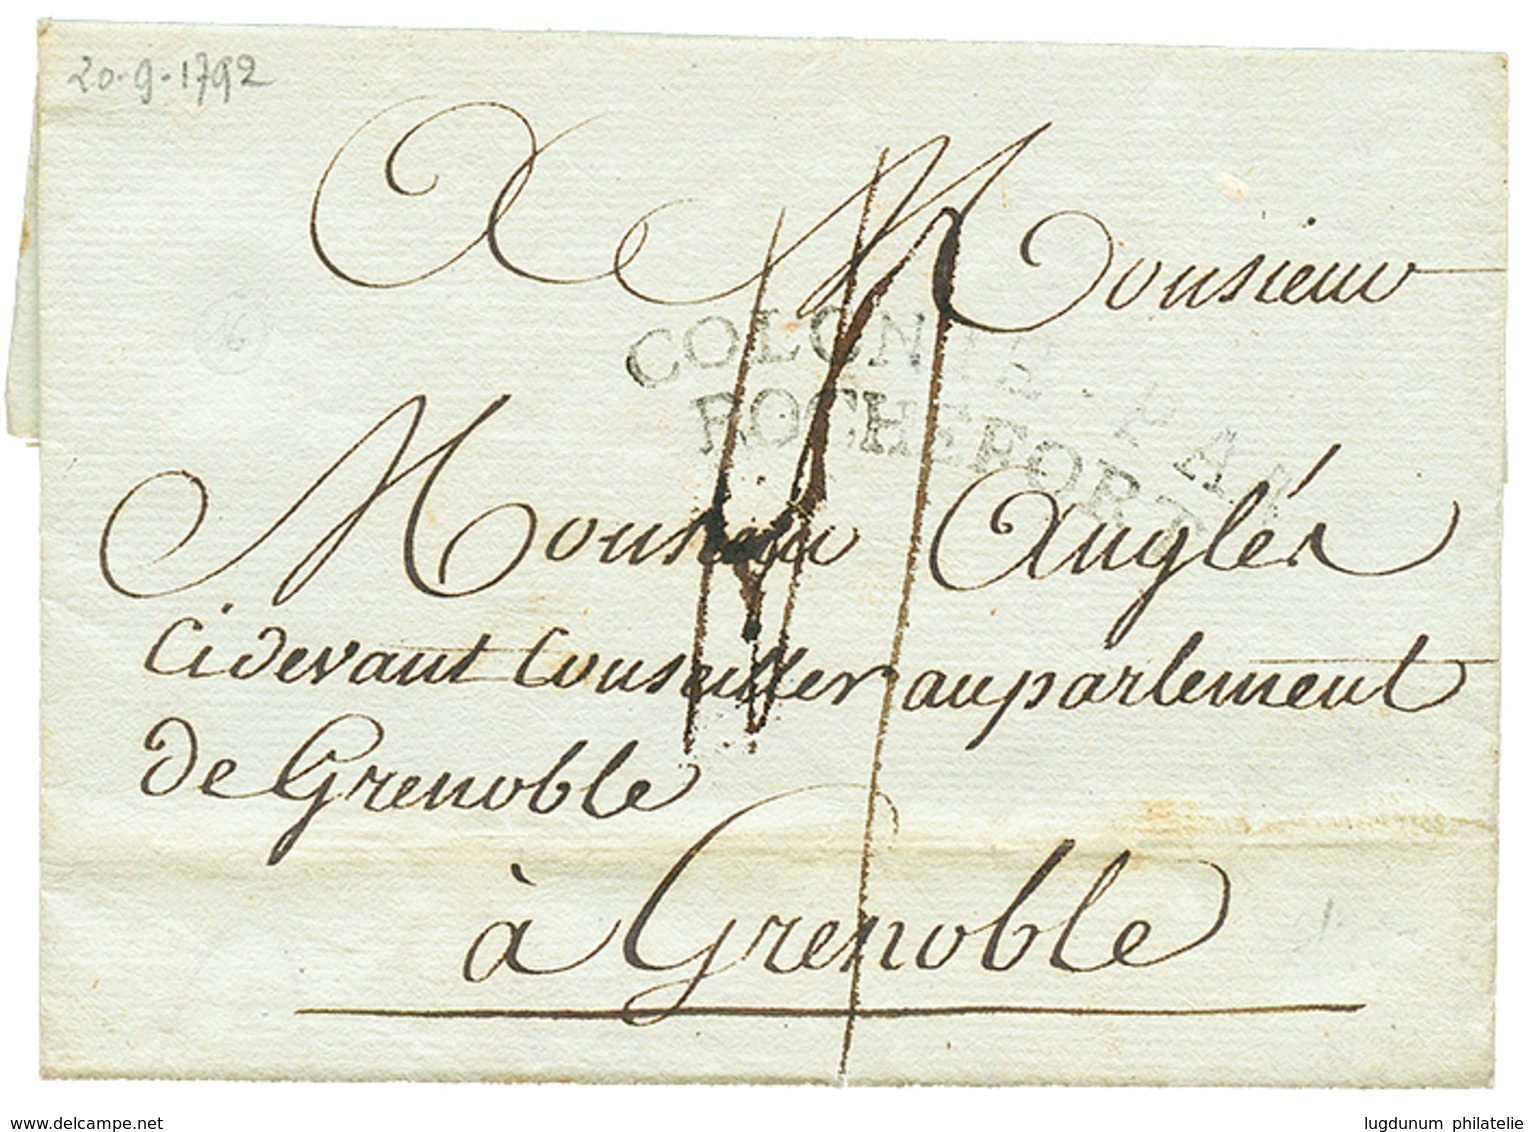 20-9-1792
A Monsieur
COLONIE. PAR
ROCHEFORT
Monsieur Anglés
Cidevant Conseiller auparlement
de Grenoble
à Grenoble
www.delcampe.net
lugdunum philatelie